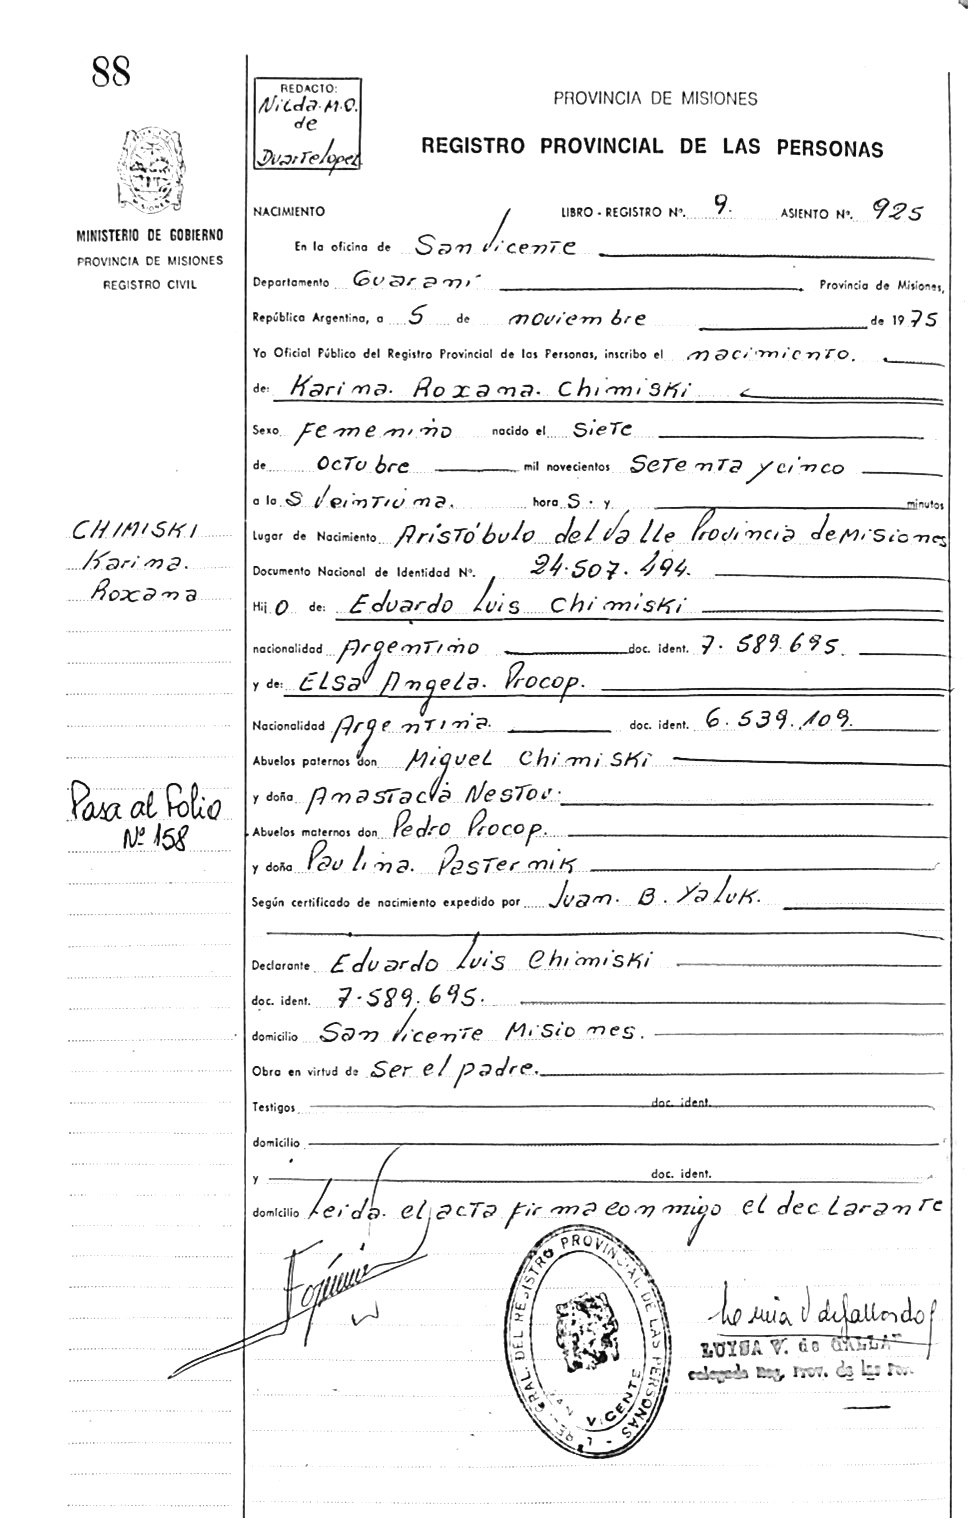 88
REDACTO:
Nilda M.O.
de
Duartelopez
PROVINCIA DE MISIONES
REGISTRO PROVINCIAL DE LAS PERSONAS
MINISTERIO DE GOBIERNO
PROVINCIA DE MISIONES
REGISTRO CIVIL
NACIMIENTO LIBRO - REGISTRO Nº. 9. ASIENTO Nº. 925
En la oficina de San Vicente
Departamento Guaraní Provincia de Misiones,
República Argentina, a 5 de noviembre de 1975
Yo Oficial Público del Registro Provincial de las Personas, inscribo el nacimiento.
de: Karina. Roxana. Chimiski
Sexo Femenino nacido el siete
de octubre mil novecientos setenta y cinco
a las veintiuna. horas. y minutos
CHIMISKI
Karina.
Roxana
Lugar de Nacimiento Aristóbulo del Valle Provincia de Misiones
Documento Nacional de Identidad Nº. 24.507.494.
Hijo de: Eduardo Luis Chimiski
nacionalidad Argentino doc. ident. 7.589.695.
y de: Elsa Angela. Procop.
Nacionalidad Argentina. doc. ident. 6.539.109.
Abuelos paternos don Miguel Chimiski
y doña Anastacia Nestov.
Pasa al Folio
Nº 158
Abuelos maternos don Pedro Procop.
y doña Paulina. Pasternik
Según certificado de nacimiento expedido por Juan. B. Yaluk.
Declarante Eduardo Luis Chimiski
doc. ident. 7.589.695.
domicilio San Vicente Misiones.
Obra en virtud de ser el padre.
Testigos doc. ident.
domicilio
y doc. ident.
domicilio Leida. el acta firma conmigo el declarante
GRAL. DEL REGISTRO PROVINCIAL DE LAS PERSONAS
SAN VICENTE
LUISA V. de
Reg. Prov. de las Per.